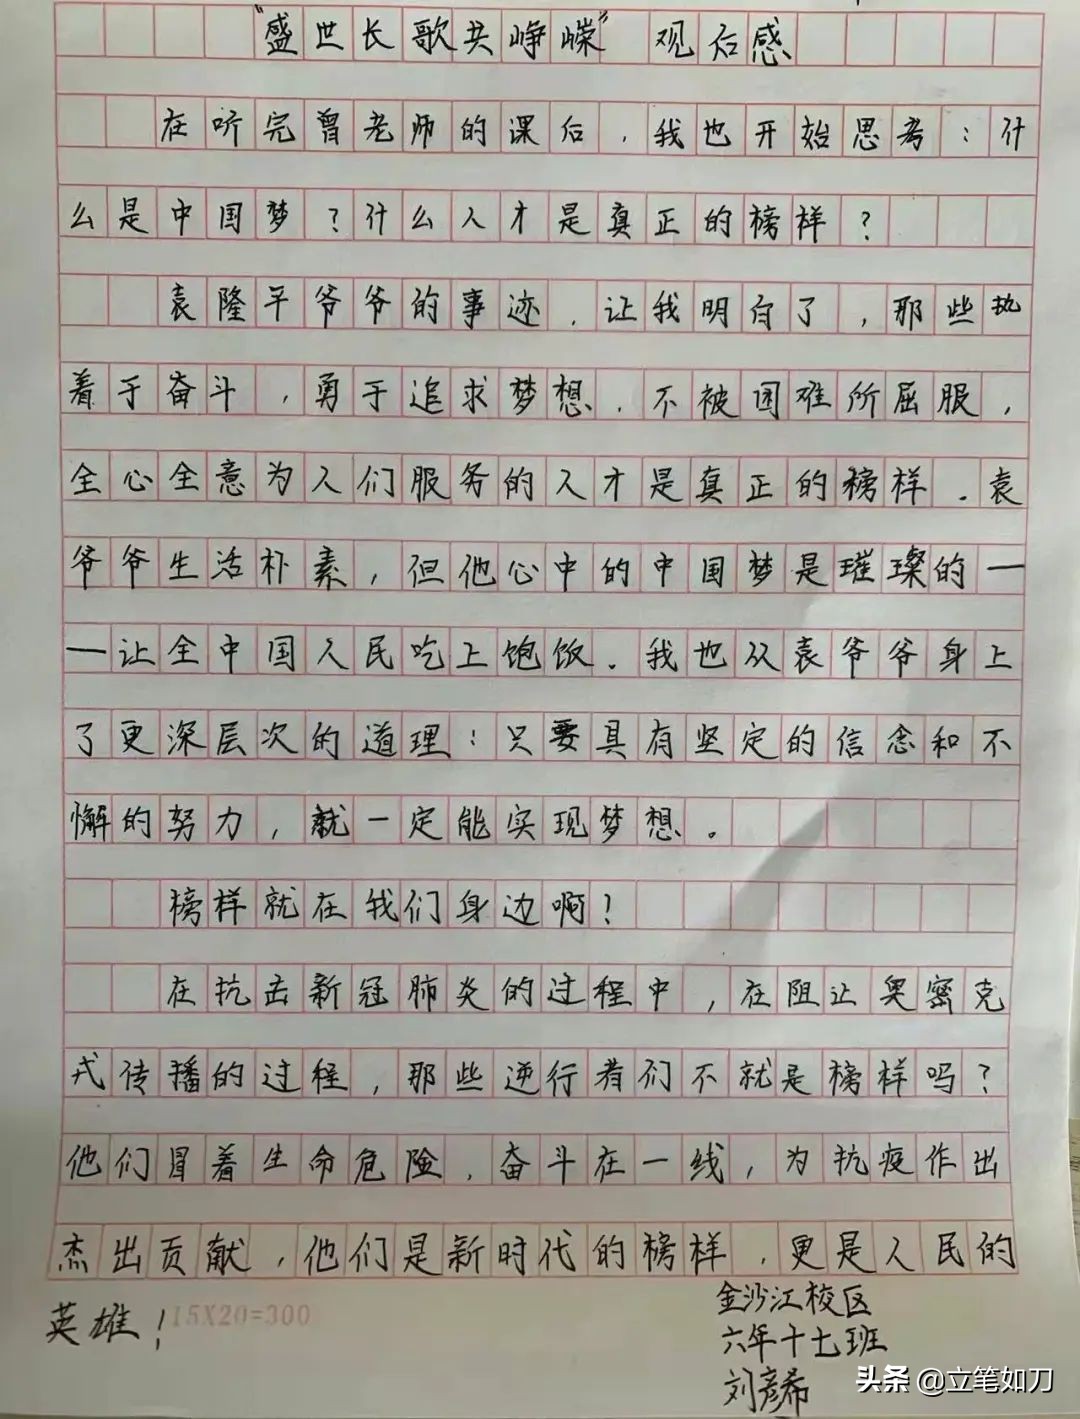 “盛世长歌共峥嵘”观后感
在听完曾老师的课后，我也开始思考：什
么是中国梦？什么人才是真正的榜样？
袁隆平爷爷的事迹，让我明白了，那些执
着于奋斗，勇于追求梦想，不被困难所屈服，
全心全意为人们服务的人才是真正的榜样．袁
爷爷生活朴素，但他心中的中国梦是璀璨的—
—让全中国人民吃上饱饭．我也从袁爷爷身上
了更深层次的道理：只要具有坚定的信念和不
懈的努力，就一定能实现梦想。
榜样就在我们身边啊？
在抗击新冠肺炎的过程中，在阻让奥密克
戎传播的过程，那些逆行者们不就是榜样吗？
他们冒着生命危险，奋斗在一线，为抗疫作出
杰出贡献，他们是新时代的榜样，更是人民的
英雄！
15X20=300
金沙江校区
六年十七班
刘彦希
头条 @立笔如刀